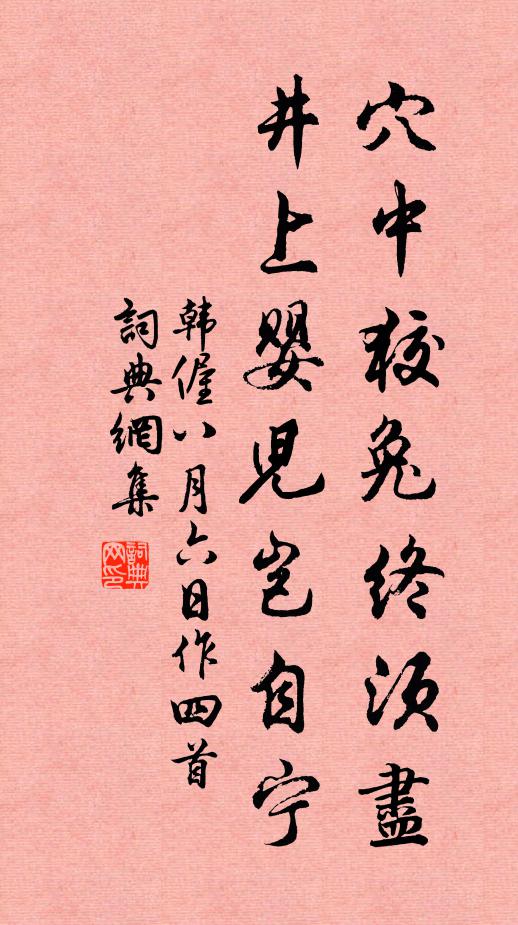 穴中狡兔終須盡
井上嬰兒岂自宁
韩偓八月六日作四首
詞典網集
詞典网印